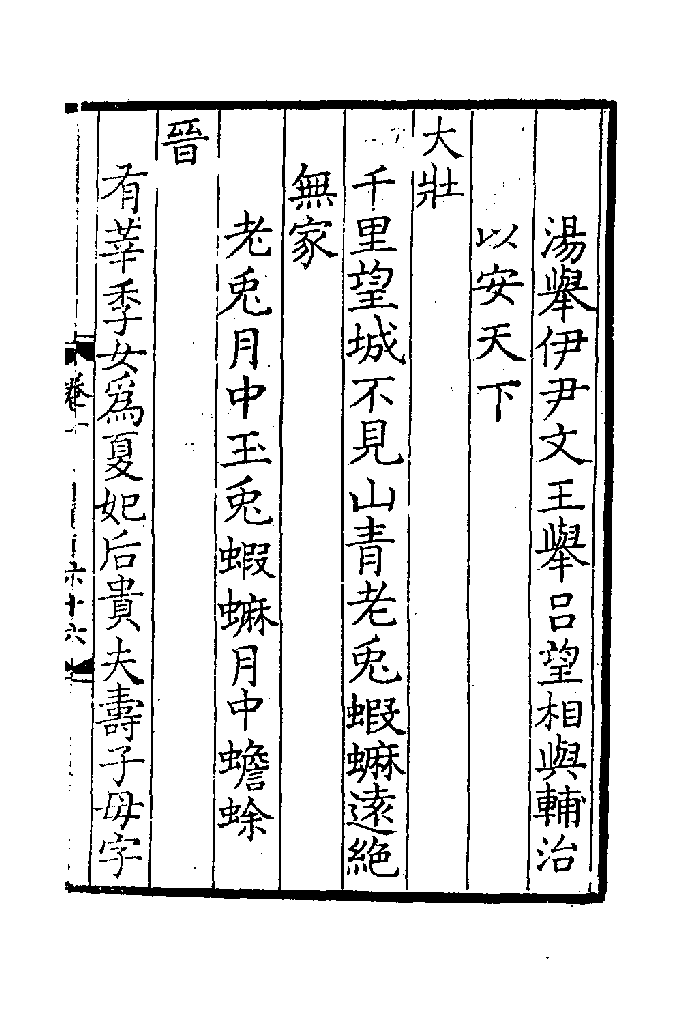 湯舉伊尹文王舉呂望相與輔治
以安天下
大壯
千里望城不見山青老兎蝦蟆遠絶
無家
老兎月中玉兎蝦蟆月中蟾蜍
晉
有莘季女為夏妃后貴夫壽子母字
卷十
六十六